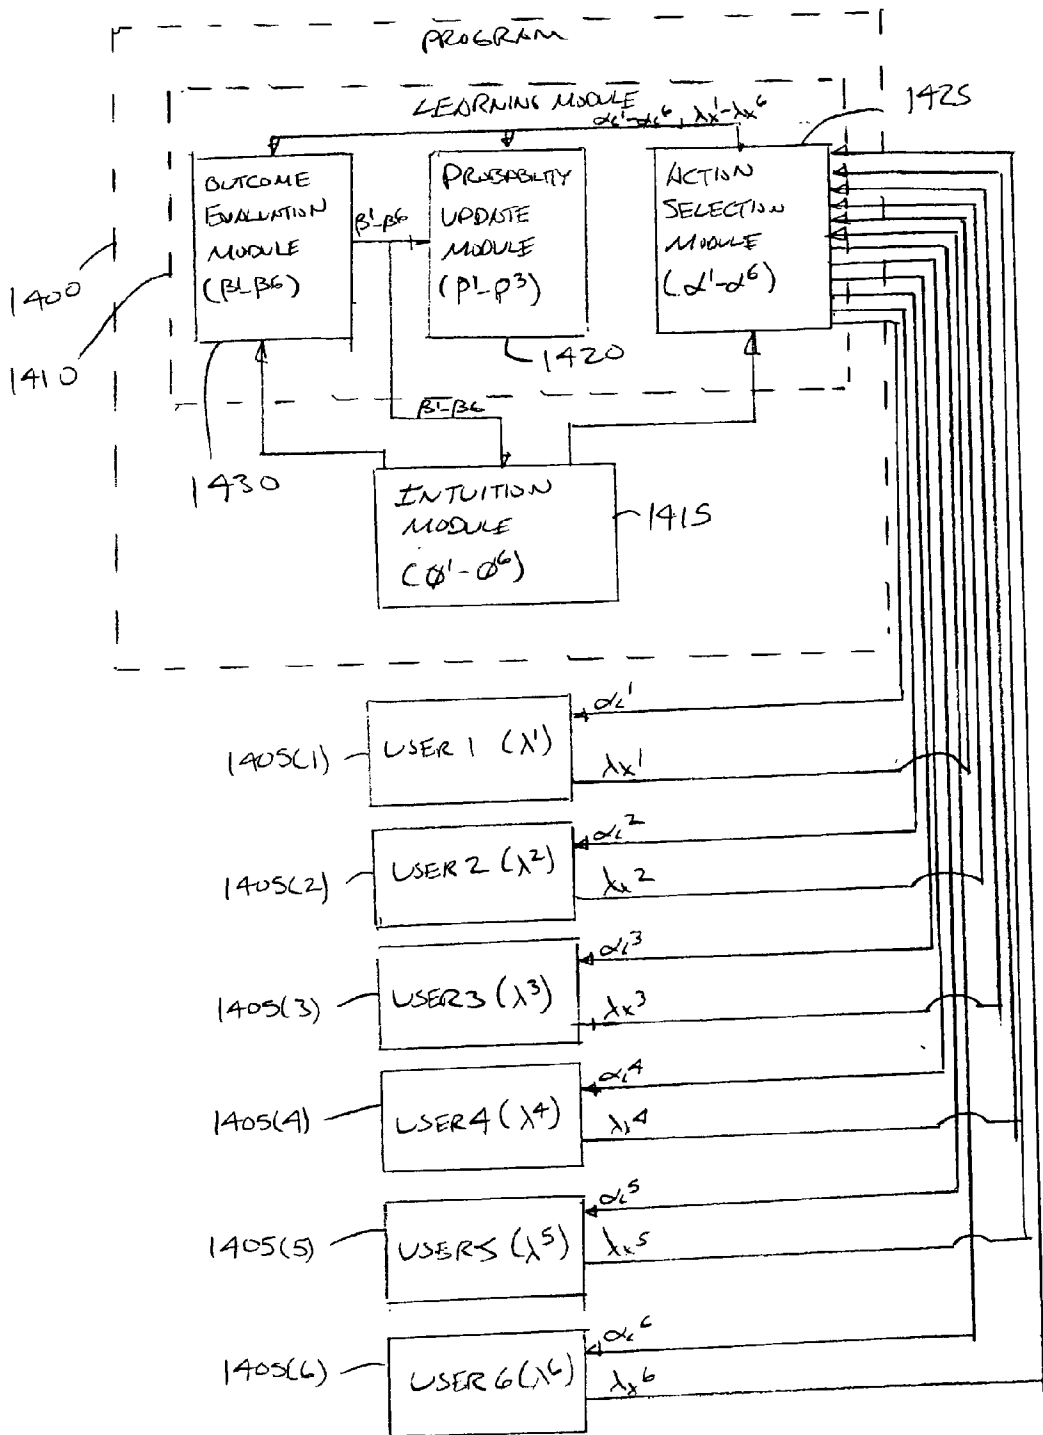 PROGRAM
LEARNING MODULE
αᵢ¹-αᵢ⁶, λₓ¹-λₓ⁶
1425
OUTCOME
EVALUATION
MODULE
(β¹-β⁶)
β¹-β⁶
PROBABILITY
UPDATE
MODULE
(p¹-p³)
ACTION
SELECTION
MODULE
(α¹-α⁶)
1400
1410
1420
β¹-β⁶
1430
INTUITION
MODULE
(Ø¹-Ø⁶)
1415
αᵢ¹
1405(1)
USER 1 (λ¹)
λₓ¹
αᵢ²
1405(2)
USER 2 (λ²)
λₓ²
αᵢ³
1405(3)
USER 3 (λ³)
λₓ³
αᵢ⁴
1405(4)
USER 4 (λ⁴)
λₓ⁴
αᵢ⁵
1405(5)
USER 5 (λ⁵)
λₓ⁵
αᵢ⁶
1405(6)
USER 6 (λ⁶)
λₓ⁶